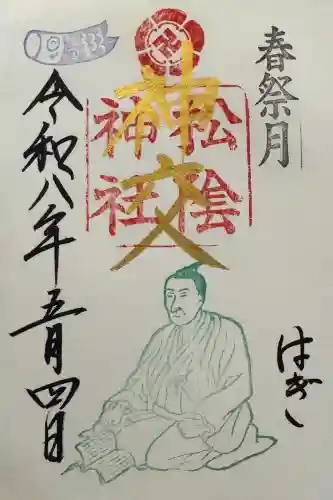 春祭月
はぎし
神交
松陰
神社
令和八年五月四日